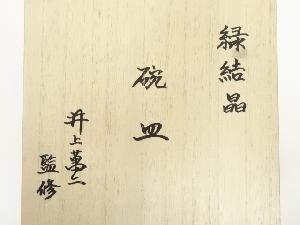 緑結晶
碗皿
井上萬二
監修